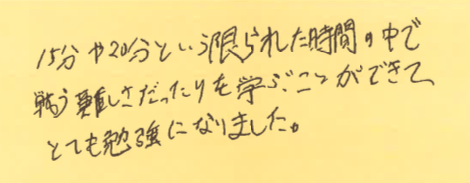 15分や20分という限られた時間の中で
戦う難しさだったりを学ぶことができて、
とても勉強になりました。